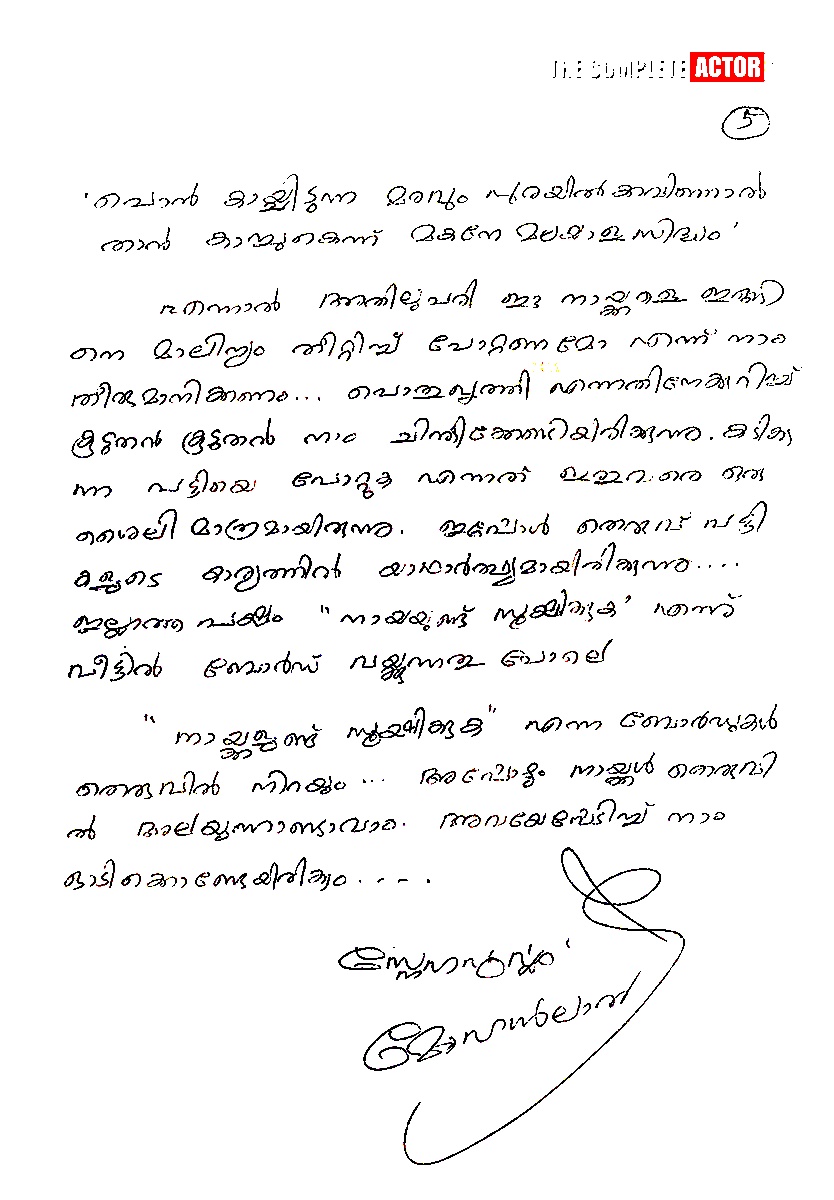 THE COMPLETE ACTOR
5
'പൊൻ കായ്ച്ചിടുന്ന മരവും പുരയിൽ കവിഞ്ഞാൽ
താൻ കായ്കുകെന്ന് മകനേ മലയാള സിദ്ധം'
എന്നാൽ അതിലുപരി ഈ നായ്ക്കളെ ഇങ്ങി
നെ മാലിന്യം തീറ്റിച്ച് പോറ്റണമോ എന്ന് നാം
തീരുമാനിക്കണം... പൊതുവൃത്തി എന്നതിനേക്കുറിച്ച്
കൂടുതൽ കൂടുതൽ നാം ചിന്തിക്കേണ്ടിയിരിക്കുന്നു. കടിക്കു
ന്ന പട്ടിയെ പോറ്റുക എന്നത് ഇതുവരെ ഒരു
ശൈലി മാത്രമായിരുന്നു. ഇപ്പോൾ തെരുവ് പട്ടി
കളുടെ കാര്യത്തിൽ യാഥാർത്ഥ്യമായിരിക്കുന്നു....
ഇല്ലാത്ത പക്ഷം "നായയുണ്ട് സൂക്ഷിക്കുക' എന്ന്
വീട്ടിൽ ബോർഡ് വയ്ക്കുന്നതു പോലെ
"നായ്ക്കളുണ്ട് സൂക്ഷിക്കുക" എന്ന ബോർഡുകൾ
തെരുവിൽ നിറയും... അപ്പോഴും നായ്ക്കൾ തെരുവി
ൽ അലയുന്നുണ്ടാവാം. അവയെപ്പേടിച്ച് നാം
ഓടിക്കൊണ്ടേയിരിക്കും....
സ്നേഹപൂർവ്വം'
മോഹൻലാൽ